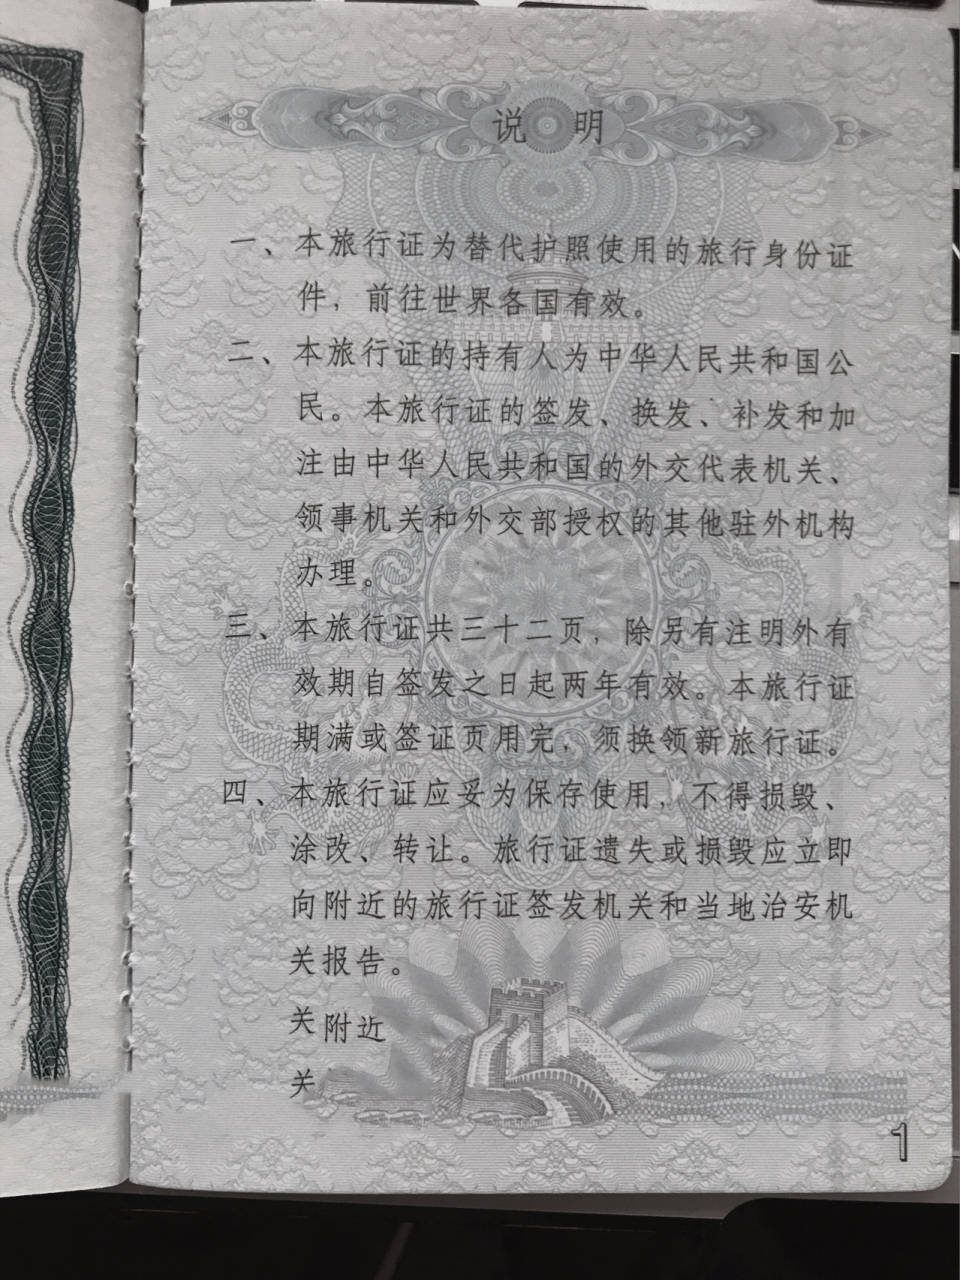 说明
一、本旅行证为替代护照使用的旅行身份证
件，前往世界各国有效。
二、本旅行证的持有人为中华人民共和国公
民。本旅行证的签发、换发、补发和加
注由中华人民共和国的外交代表机关、
领事机关和外交部授权的其他驻外机构
办理。
三、本旅行证共三十二页，除另有注明外有
效期自签发之日起两年有效。本旅行证
期满或签证页用完，须换领新旅行证。
四、本旅行证应妥为保存使用，不得损毁、
涂改、转让。旅行证遗失或损毁应立即
向附近的旅行证签发机关和当地治安机
关报告。
关附近
关
1